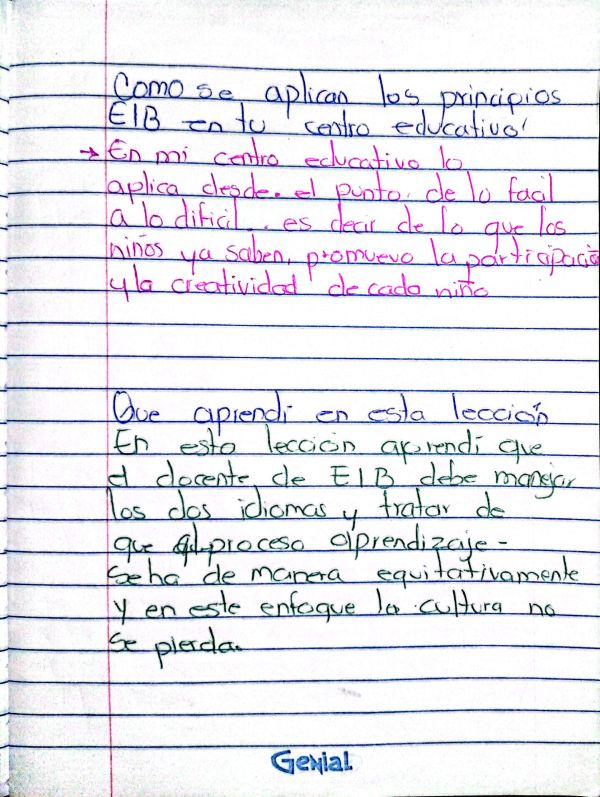 Como se aplican los principios
EIB en tu centro educativo'
→ En mi centro educativo lo
aplica desde. el punto. de lo facil
a lo dificil.. es decir de lo que los
niños ya saben, promuevo la participació
y la creatividad de cada niño
Que aprendi en esta lección
En esta lección aprendí que
el docente de EIB debe manejar
los dos idiomas y tratar de
que el proceso aprendizaje-
seha de manera equitativamente
y en este enfoque la cultura no
se pierda.
Genial